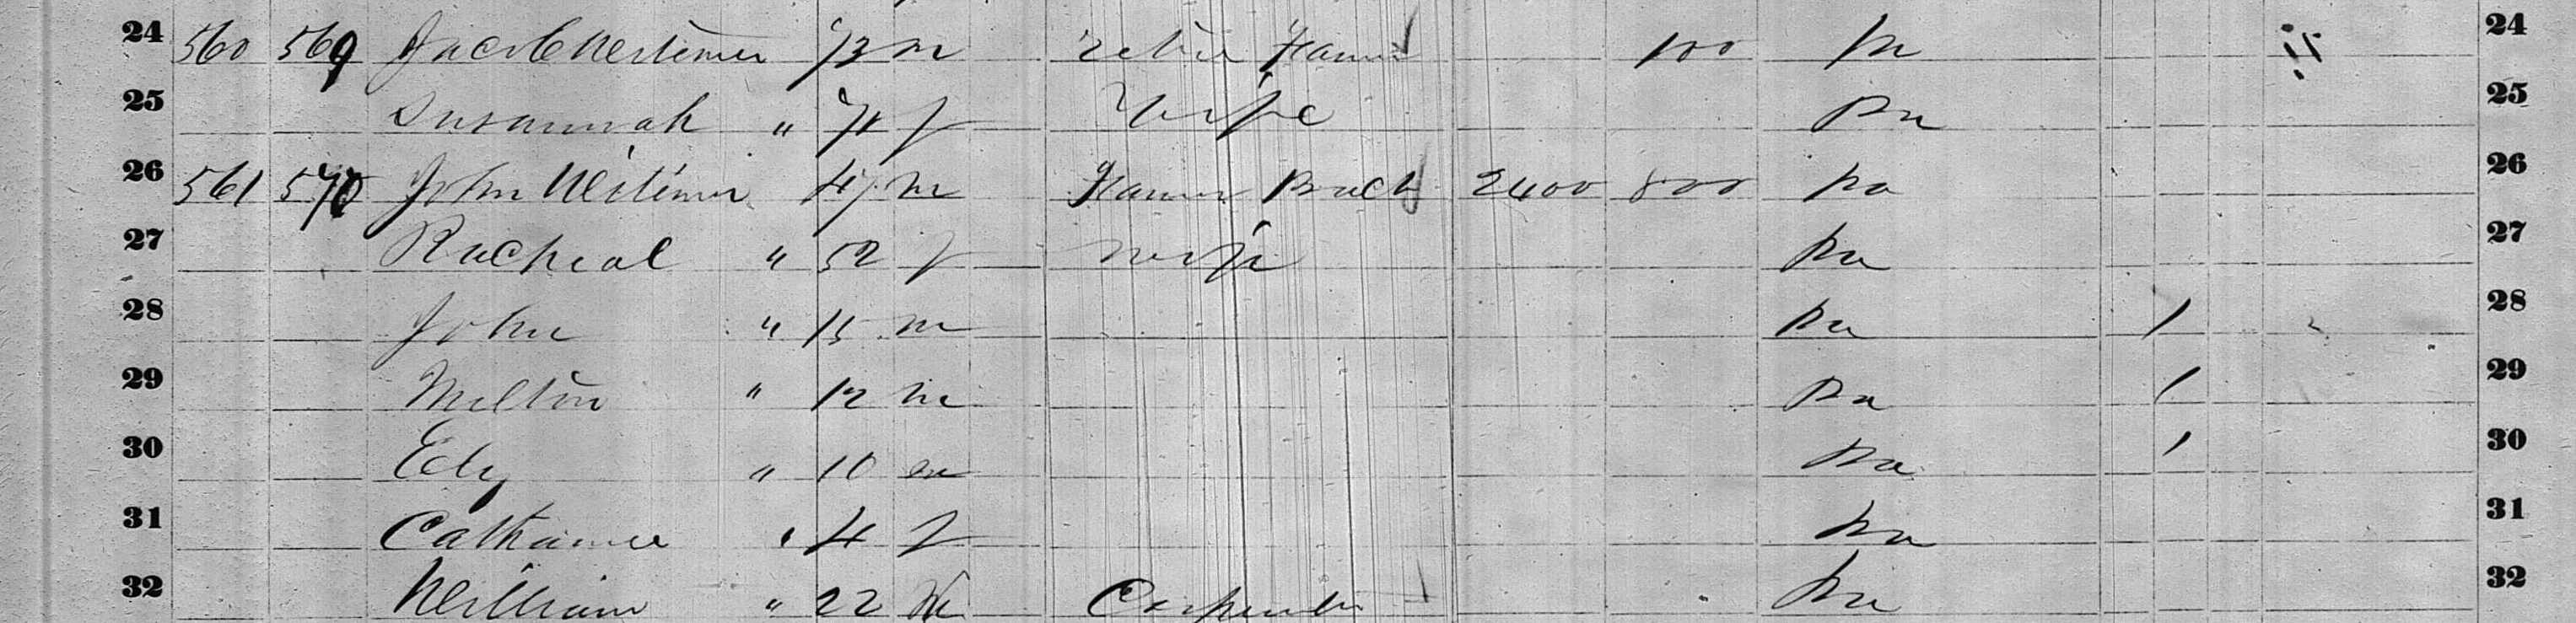 24 560 569 Jacob Westimer 73 m Farmer 100 Pa 24
25 Susannah " 71 f Wife Pa 25
26 561 570 John Westimer 47 m Farmer 2400 800 Pa 26
27 Racheal " 52 f Wife Pa 27
28 John " 15 m Pa 1 28
29 Milton " 12 m Pa 1 29
30 Ely " 10 m Pa 1 30
31 Catharine " 4 f Pa 31
32 William " 22 m Carpenter Pa 32